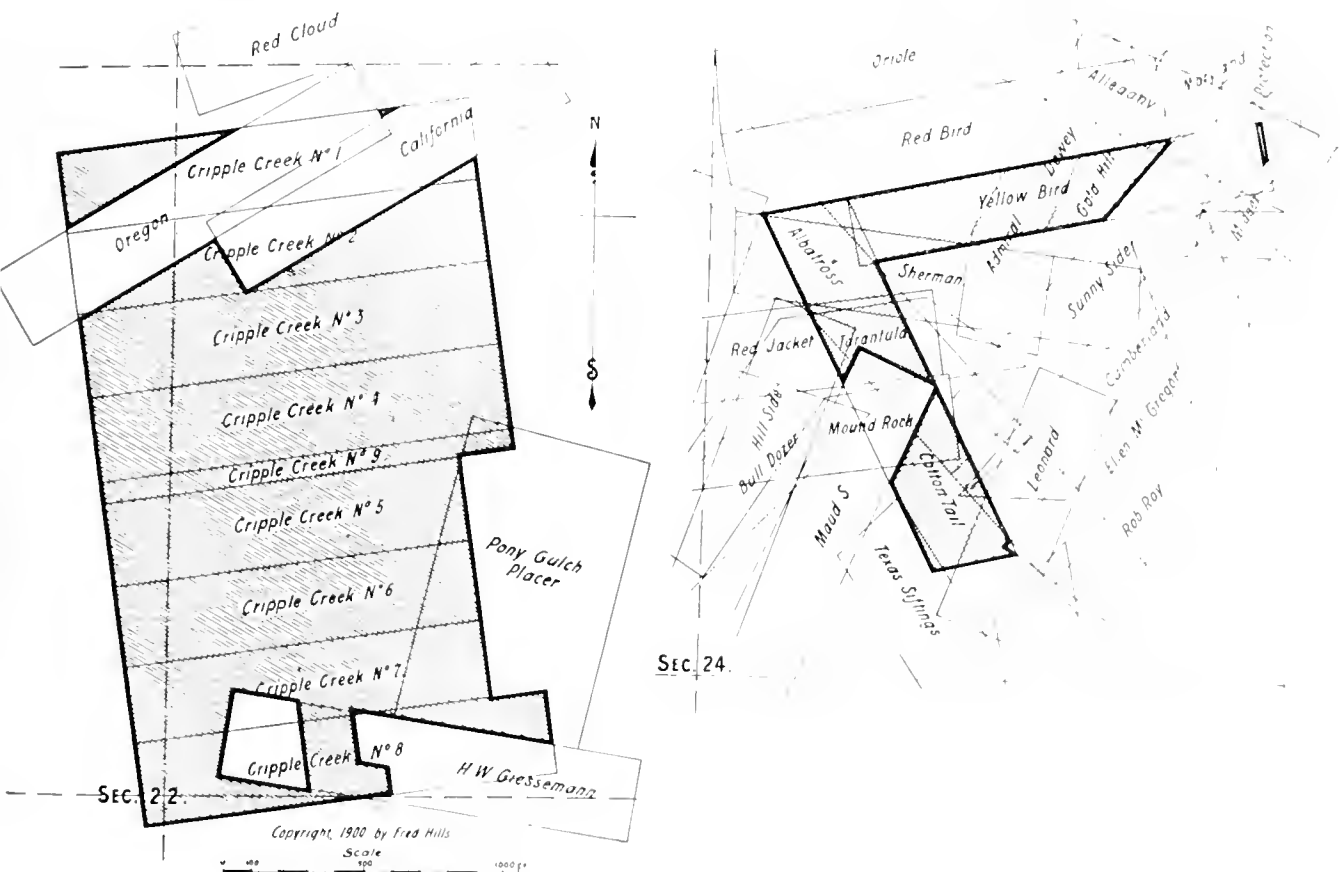 Red Cloud
Cripple Creek Nº 1
California
Oregon
Cripple Creek Nº 2
Cripple Creek Nº 3
Cripple Creek Nº 4
Cripple Creek Nº 9
Cripple Creek Nº 5
Cripple Creek Nº 6
Cripple Creek Nº 7
Cripple Creek Nº 8
Pony Gulch
Placer
H W Giessemann
SEC. 22.
N
S
Copyright, 1900 by Fred Hills
Scale
0 100 500 1000 Ft
Oriole
Allegany
Red Bird
Dewey
Yellow Bird
Gold Hill
Admiral
Albatross
Sherman
Sunny Side
Red Jacket
Tarantula
Cumberland
Hill Side
Mound Rock
Bull Dozer
Leonard
Ellen Mc Gregor
Cotton Tail
Maud S
Rob Roy
Texas Siftings
SEC. 24.